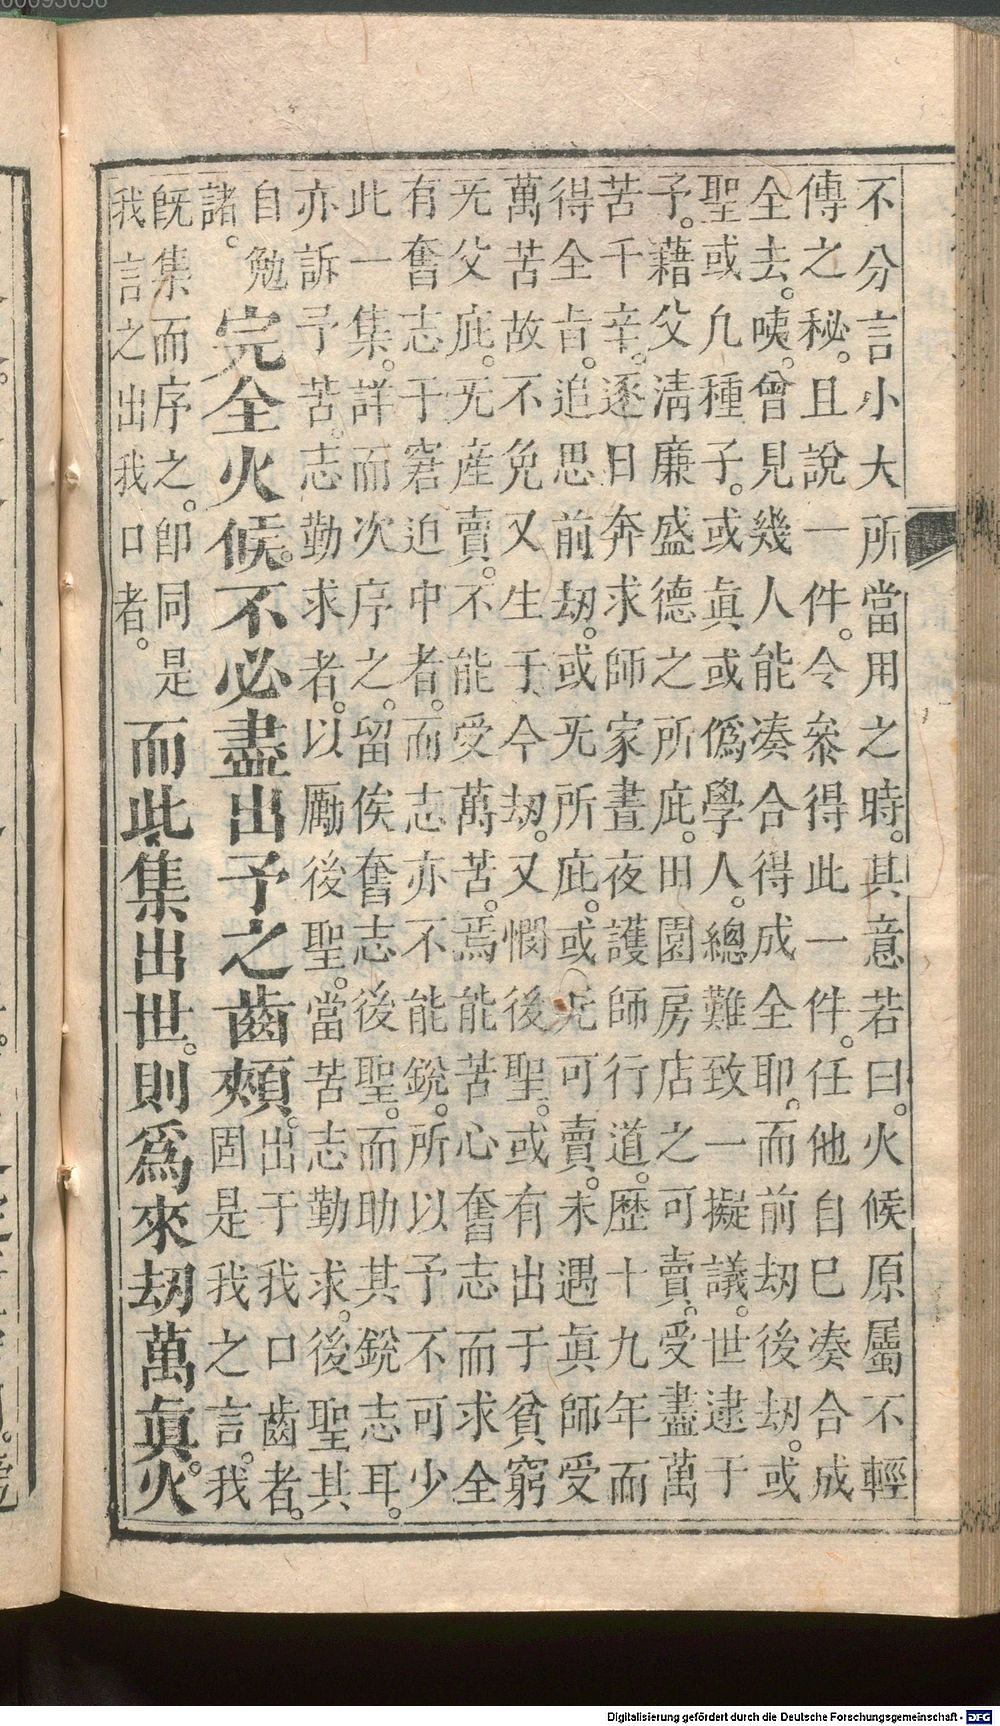 不分言小大所當用之時。其意若曰。火候原屬不輕
傳之秘。且說一件。令叅得此一件。任他自巳凑合成
全去。咦。曾見幾人能凑合得成全耶。而前劫後劫。或
聖或凡種子。或眞或僞學人。總難致一擬議。世逮于
予。藉父淸廉盛德之所庇。田園房店之可賣。受盡萬
苦千辛。逐日奔求師家晝夜護師行道。歷十九年而
得全㫖。追思前劫。或旡所庇。或旡可賣。未遇眞師受
萬苦故不免又生于今劫。又憫後聖。或有出于貧窮
旡父庇。旡産賣。不能受萬苦。焉能苦心奮志而求全
有奮志于窘迫中者。而志亦不能銳。所以予不可少
此一集。詳而次序之。留俟奮志後聖。而助其銳志耳。
亦訴予苦。志勤求者。以勵後聖。當苦志勤求。後聖其
自勉
諸。
完全火候。不必盡出予之齒頰。
出于我口齒者。
固是我之言。我
旣集而序之。卽同是
我言之出我口者。
而此集出世。則爲來劫萬眞火
Digitalisierung gefördert durch die Deutsche Forschungsgemeinschaft - DFG